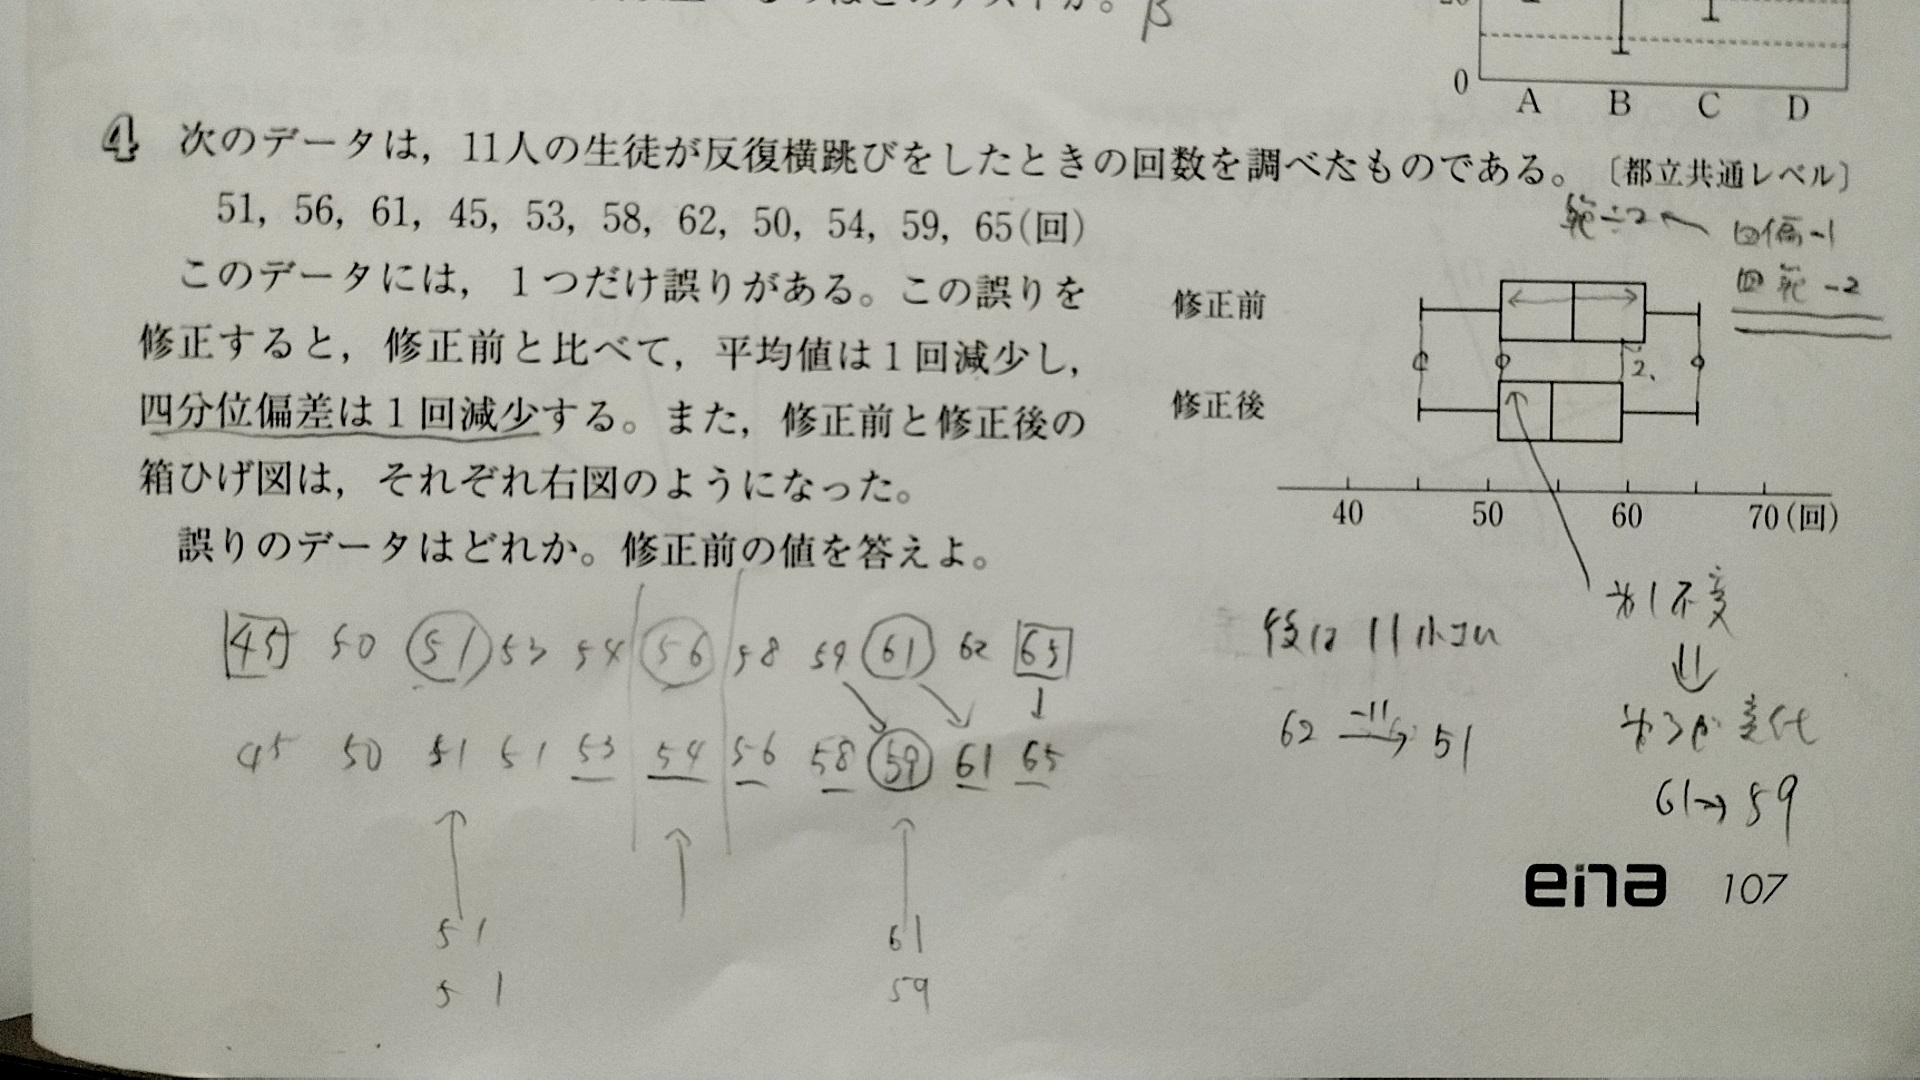 β
0
A B C D
4 次のデータは，11人の生徒が反復横跳びをしたときの回数を調べたものである。〔都立共通レベル〕
51, 56, 61, 45, 53, 58, 62, 50, 54, 59, 65(回)
このデータには，1つだけ誤りがある。この誤りを
修正すると，修正前と比べて，平均値は1回減少し，
四分位偏差は1回減少する。また，修正前と修正後の
箱ひげ図は，それぞれ右図のようになった。
誤りのデータはどれか。修正前の値を答えよ。
範÷2 ← 四偏-1
四範-2
修正前
2.
修正後
40 50 60 70(回)
45 50 51 53 54 56 58 59 61 62 65
45 50 51 51 53 54 56 58 59 61 65
51 61
51 59
後は 11小さい
62 -11→ 51
1不変
⇓
3が変化
61→59
ena 107